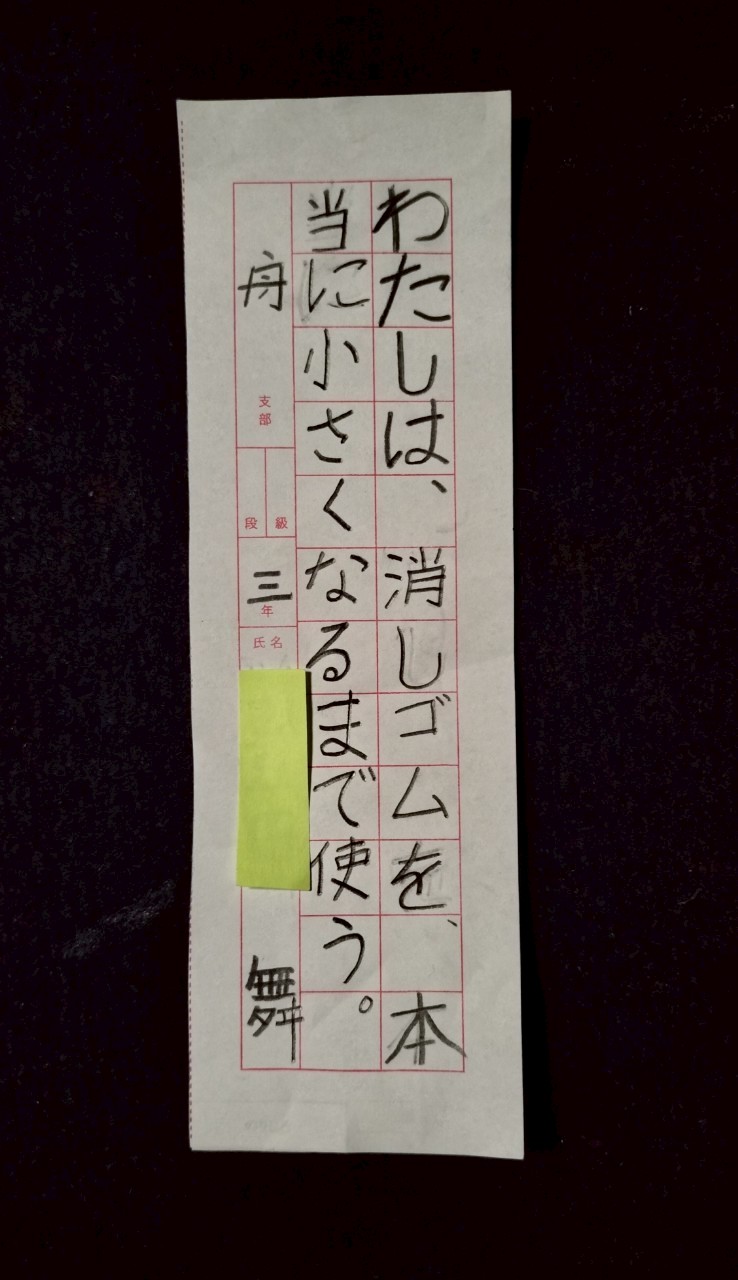 わたしは、消しゴムを、本
当に小さくなるまで使う。
舟支部
段級
三年
氏名
舞